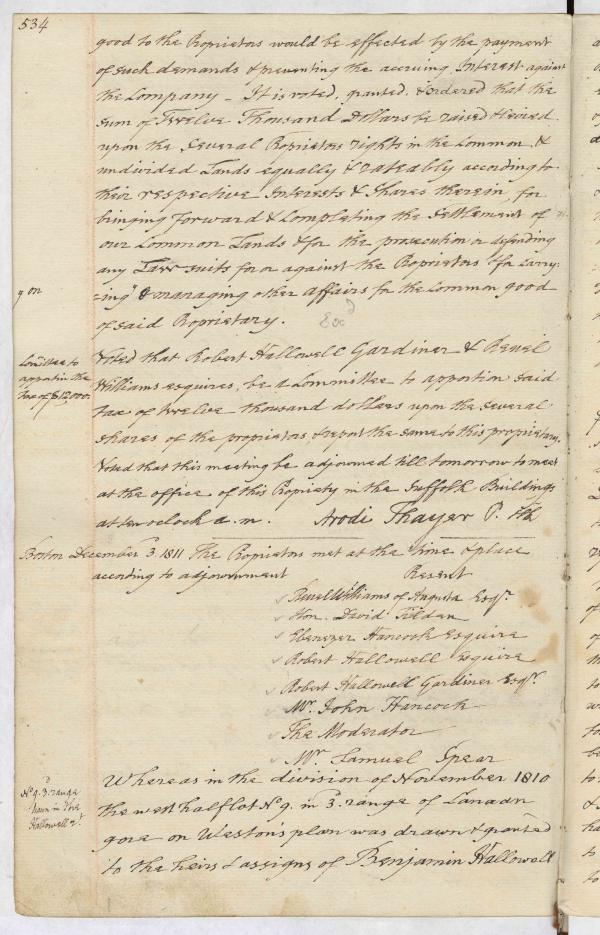 534
good to the Proprietors would be effected by the payment
of such demands & preventing the accruing Interest against
the Company – It is voted, granted, & ordered that the
sum of Twelve Thousand Dollars be raised & levied
upon the several Proprietors rights in the Common &
undivided Lands equally & rateably according to
their respective Interests & Shares therein, for
bringing forward & Completing the Settlement of
our Common Lands & for the prosecution or defending
any Law suits for or against the Proprietors & for carry-
g on
=ing & managing other affairs for the Common good
of said Propriety.
Voted that Robert Hallowell Gardiner & Reuel
Committee to
apportion the
Tax of $12,000.
Williams esquires, be a Committee to apportion said
tax of twelve thousand dollars upon the several
shares of the proprietors & report the same to this propriety.
Voted that this meeting be adjourned till tomorrow to meet
at the office of this Propriety in the Suffolk Buildings
at ten oclock a.m. Arodi Thayer P. Clk
Boston December 3. 1811 The Proprietors met at the time & place
according to adjournment Present
Reuel Williams of Augusta Esqr.
Hon. David Tilden
Ebenezer Hancock Esquire
Robert Hallowell Esquire
Robert Hallowell Gardiner Esqr.
Mr. John Hancock
The Moderator
Mr. Samuel Spear
No. 9. 3d. range
Hallowell
Whereas in the division of November 1810
the west half lot No. 9. in 3d. range of Canaan
gore on Weston's plan was drawn & granted
to the heirs & assigns of Benjamin Hallowell